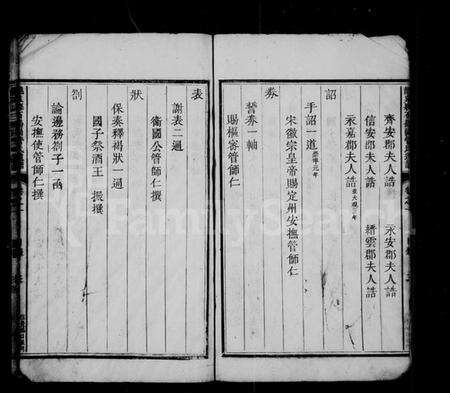 齊安郡夫人誥　永安郡夫人誥
信安郡夫人誥　縉雲郡夫人誥
永嘉郡夫人誥
詔
手詔一道
宋徽宗皇帝賜定州安撫管師仁
券
誓券一軸
賜樞密管師仁
表
謝表二通
衛國公管師仁撰
狀
保奏釋褐狀一通
國子祭酒王 振撰
劄
論邊務劄子一函
安撫使管師仁撰
FamilySearch